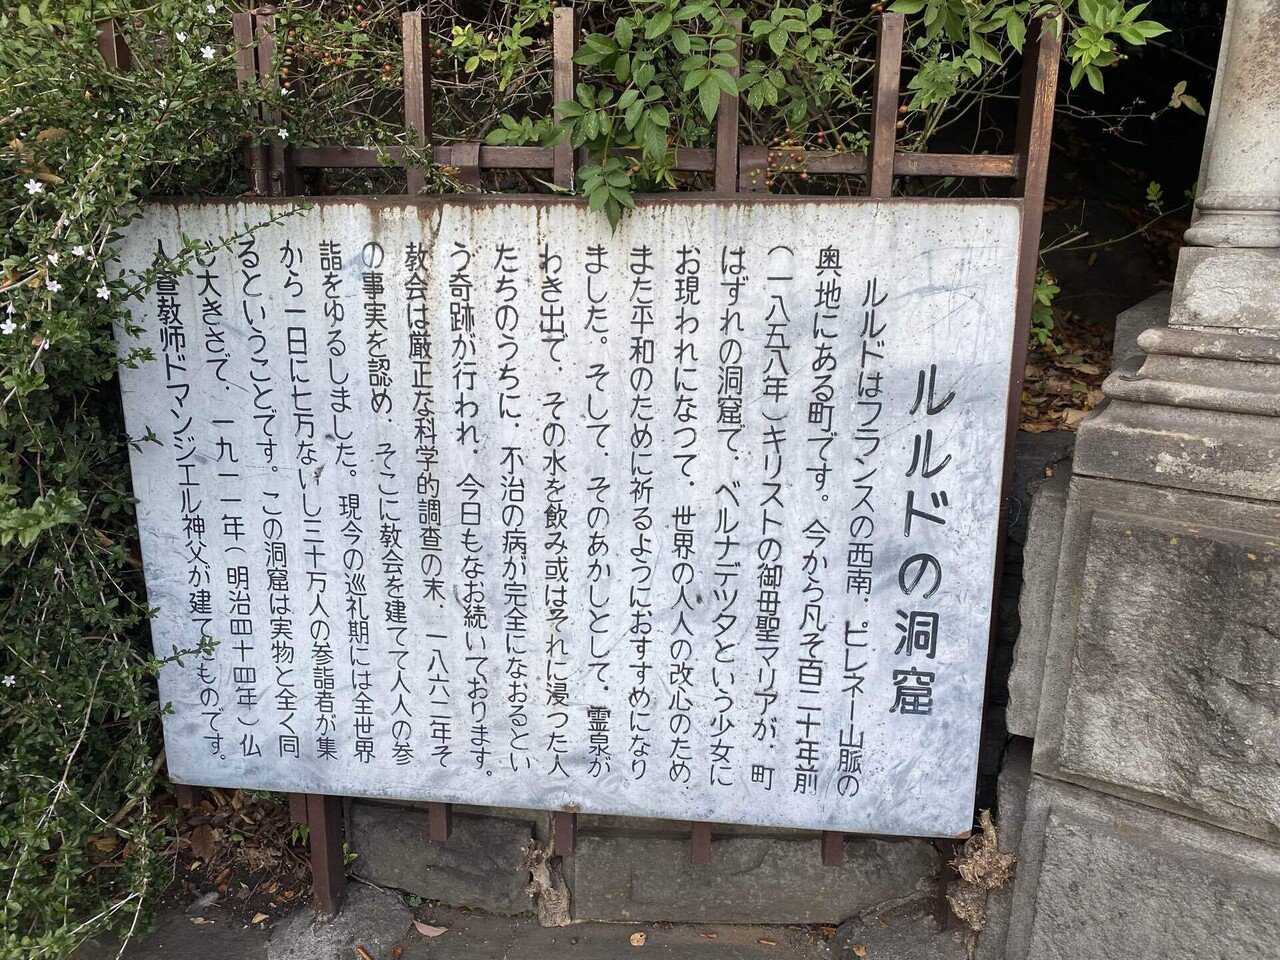 ルルドの洞窟
ルルドはフランスの西南、ピレネー山脈の
奥地にある町です。今から凡そ百二十年前
(一八五八年)キリストの御母聖マリアが、町
はずれの洞窟で、ベルナデツタという少女に
お現われになつて、世界の人人の改心のため、
また平和のために祈るようにおすすめになり
ました。そして、そのあかしとして、霊泉が
わき出て、その水を飲み或はそれに浸つた人
たちのうちに、不治の病が完全になおるとい
う奇跡が行われ、今日もなお続いております。
教会は厳正な科学的調査の末、一八六二年そ
の事実を認め、そこに教会を建てて人人の参
詣をゆるしました。現今の巡礼期には全世界
から一日に七万ないし三十万人の参詣者が集
るということです。この洞窟は実物と全く同
じ大きさで、一九一一年(明治四十四年)仏
人宣教師ドマンジエル神父が建てたものです。